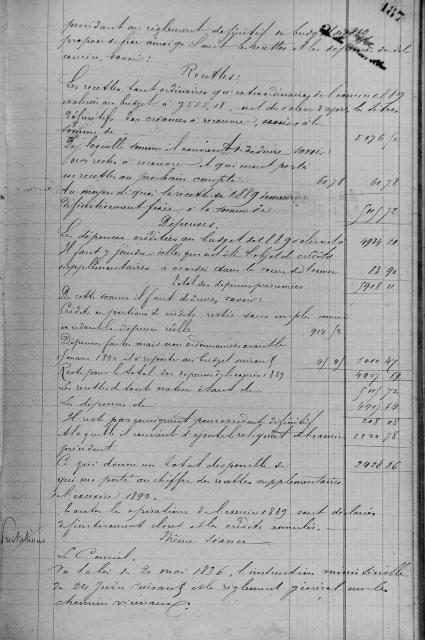 187
procédant au règlement définitif du budget
propose de fixer ainsi qu'il suit les recettes et les dépenses du dit
exercice, savoir:
Recettes:
Les recettes tant ordinaires qu'extraordinaires de l'exercice 1889
évaluées au budget à 9555,18, ont dû s'élever d'après les titres
définitifs des créances à recouvrer, savoir à la
somme de
De laquelle somme il convient de déduire savoir:
pour restes à recouvrer et qui seront portés
en recette au prochain compte 60 78 60 78
Au moyen de quoi la recette de 1889 demeure
définitivement fixée à la somme de 72
Dépenses.
Les dépenses créditées au budget de 1889
Il faut y joindre celles qui ont été l'objet de crédits
supplémentaires accordés dans le cours de l'exercice 83 90
Total des dépenses présumées
De cette somme il faut déduire savoir:
Crédits ou portions de crédits restés sans emploi comme
excédant la dépense réelle 914 52
Dépenses faites mais non ordonnancées avant le
15 mars 1890 et à reporter au budget suivant 47
Reste pour le total des dépenses de l'exercice 1889 64
Les recettes de toute nature étant de 72
Les dépenses de 64
Il reste par conséquent pour excédent définitif 208 08
Auquel il convient d'ajouter le reliquat de l'exercice 78
précédent
Ce qui donne un total disponible de 2428 86
qui sera porté au chiffre des recettes supplémentaires
de l'exercice 1890.
Toutes les opérations de l'exercice 1889 sont déclarées
définitivement closes et les crédits annulés.
Même séance
Prestations
Le Conseil,
Vu la loi du 21 mai 1836, l'instruction ministérielle
du 24 Juin suivant et le règlement général sur les
chemins vicinaux;